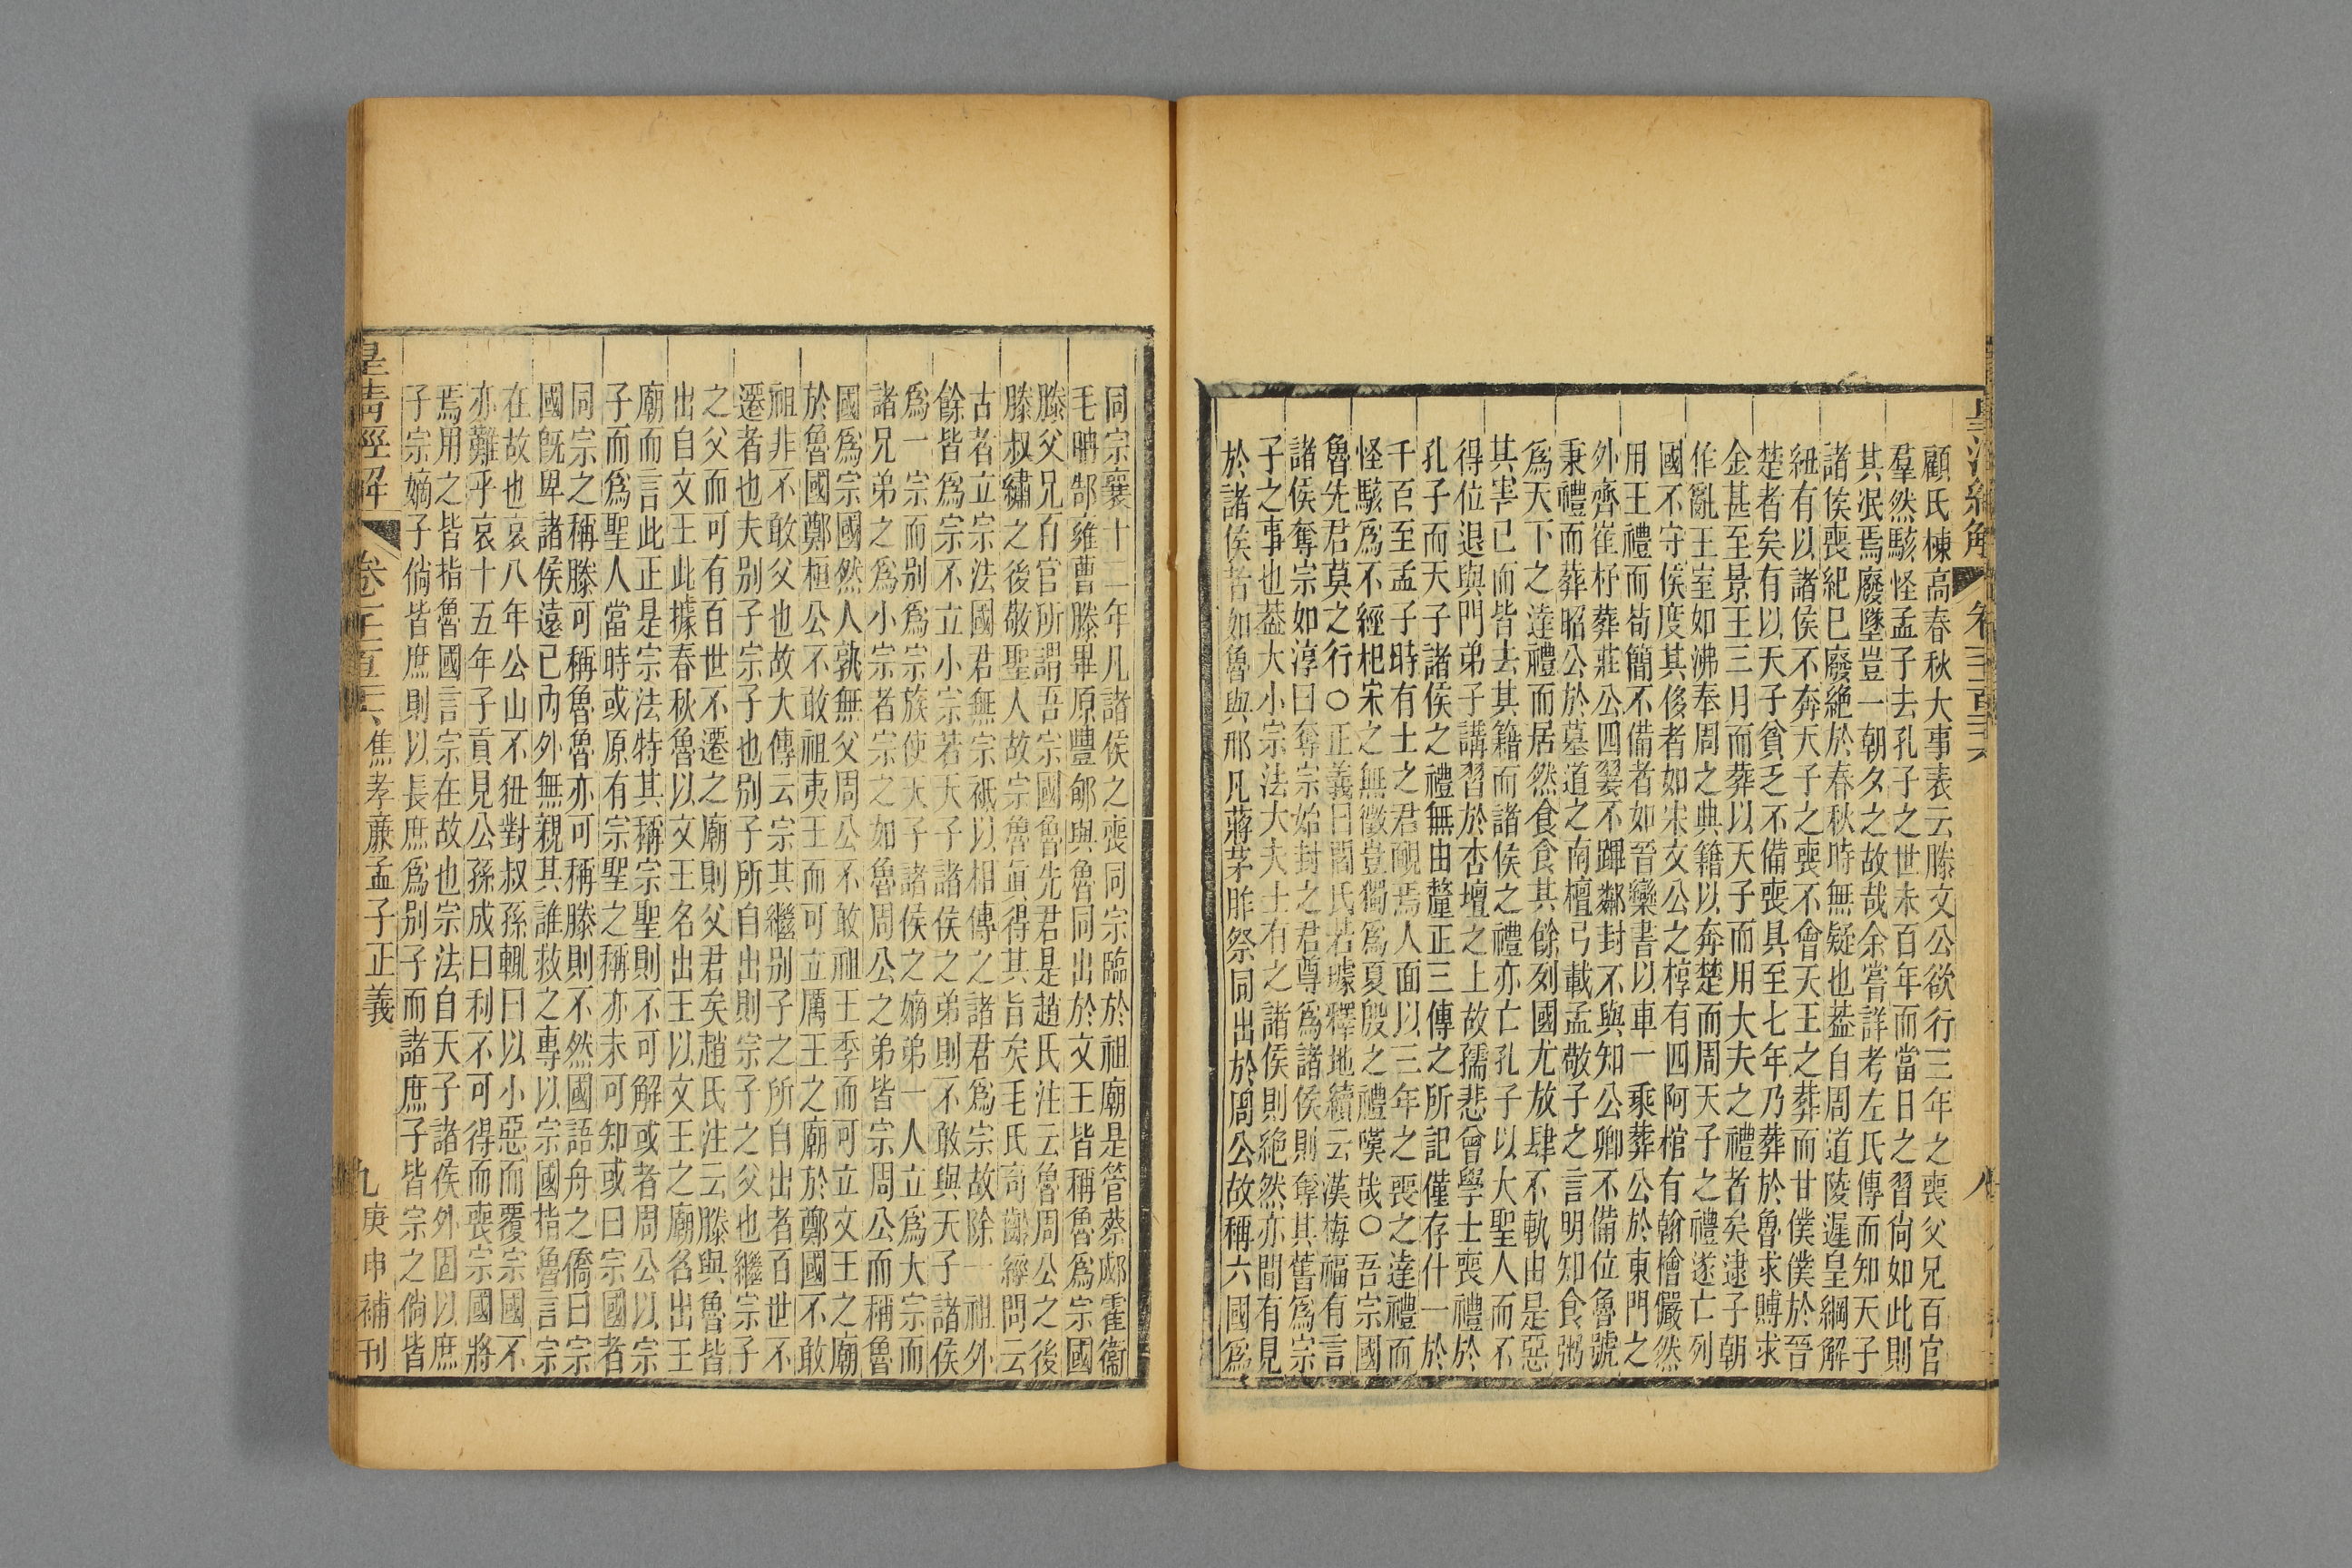 皇清經解 卷一千一百二十六 八
顧氏棟高春秋大事表云滕文公欲行三年之喪父兄百官
羣然駭怪孟子去孔子之世未百年而當日之習尙如此則
其泯焉廢墜豈一朝夕之故哉余嘗詳考左氏傳而知天子
諸侯喪紀已廢絶於春秋時無疑也葢自周道陵遲皇綱解
紐有以諸侯不奔天子之喪不會天王之葬而甘僕僕於晉
楚者矣有以天子貧乏不備喪具至七年乃葬於魯求賻求
金甚至景王三月而葬以天子而用大夫之禮者矣逮子朝
作亂王室如沸奉周之典籍以奔楚而周天子之禮遂亡列
國不守侯度其侈者如宋文公之椁有四阿棺有翰檜儼然
用王禮而苟簡不備者如晉欒書以車一乘葬公於東門之
外齊崔杼葬莊公四翣不蹕鄰封不與知公卿不備位魯號
秉禮而葬昭公於墓道之南檀弓載孟敬子之言明知食粥
爲天下之達禮而居然食食其餘列國尤放肆不軌由是惡
其害已而皆去其籍而諸侯之禮亦亡孔子以大聖人而不
得位退與門弟子講習於杏壇之上故孺悲曾學士喪禮於
孔子而天子諸侯之禮無由釐正三傳之所記僅存什一於
千百至孟子時有士之君靦焉人面以三年之喪之達禮而
怪駭爲不經杞宋之無徵豈獨爲夏殷之禮嘆哉○吾宗國
魯先君莫之行○正義曰閻氏若璩釋地續云漢梅福有言
諸侯奪宗如淳曰奪宗始封之君尊爲諸侯則奪其舊爲宗
子之事也葢大小宗法大夫士有之諸侯則絶然亦間有見
於諸侯者如魯與邢凡蔣茅胙祭同出於周公故稱六國爲
同宗襄十二年凡諸侯之喪同宗臨於祖廟是管蔡郕霍衞
毛聃郜雍曹滕畢原豐郇與魯同出於文王皆稱魯爲宗國
滕父兄百官所謂吾宗國魯先君是趙氏注云魯周公之後
滕叔繡之後敬聖人故宗魯眞得其旨矣毛氏奇齡經問云
古者立宗法國君無宗祗以相傳之諸君爲宗故除一祖外
餘皆爲宗不立小宗若天子諸侯之弟則不敢與天子諸侯
爲一宗而别爲宗族使天子諸侯之嫡弟一人立爲大宗而
諸兄弟之爲小宗者宗之如魯周公之弟皆宗周公而稱魯
國爲宗國然人孰無父周公不敢祖王季而可立文王之廟
於魯國鄭桓公不敢祖夷王而可立厲王之廟於鄭國不敢
祖非不敢父也故大傳云宗其繼别子之所自出者百世不
遷者也夫别子宗子也别子所自出則宗子之父也繼宗子
之父而可有百世不遷之廟則父君矣趙氏注云滕與魯皆
出自文王此據春秋魯以文王名出王以文王之廟名出王
廟而言此正是宗法特其稱宗聖則不可解或者周公以宗
子而爲聖人當時或原有宗聖之稱亦未可知或曰宗國者
同宗之稱滕可稱魯魯亦可稱滕則不然國語舟之僑曰宗
國旣卑諸侯遠已內外無親其誰救之專以宗國指魯言宗
在故也哀八年公山不狃對叔孫輒曰以小惡而覆宗國不
亦難乎哀十五年子貢見公孫成曰利不可得而喪宗國將
焉用之皆指魯國言宗在故也宗法自天子諸侯外固以庶
子宗嫡子倘皆庶則以長庶爲别子而諸庶子皆宗之倘皆
皇清經解 卷一千一百二十六 焦孝廉孟子正義 九 庚申補刊